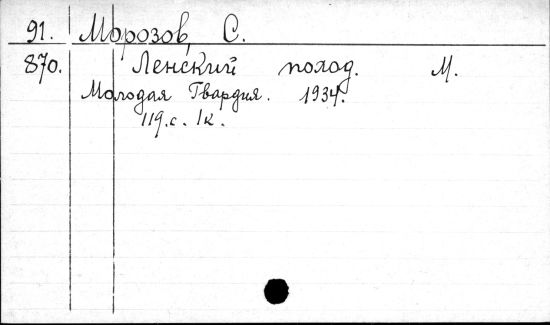 91. Морозов, С.
870. Ленский поход. М.
Молодая Гвардия. 1934.
119.с. 1к.